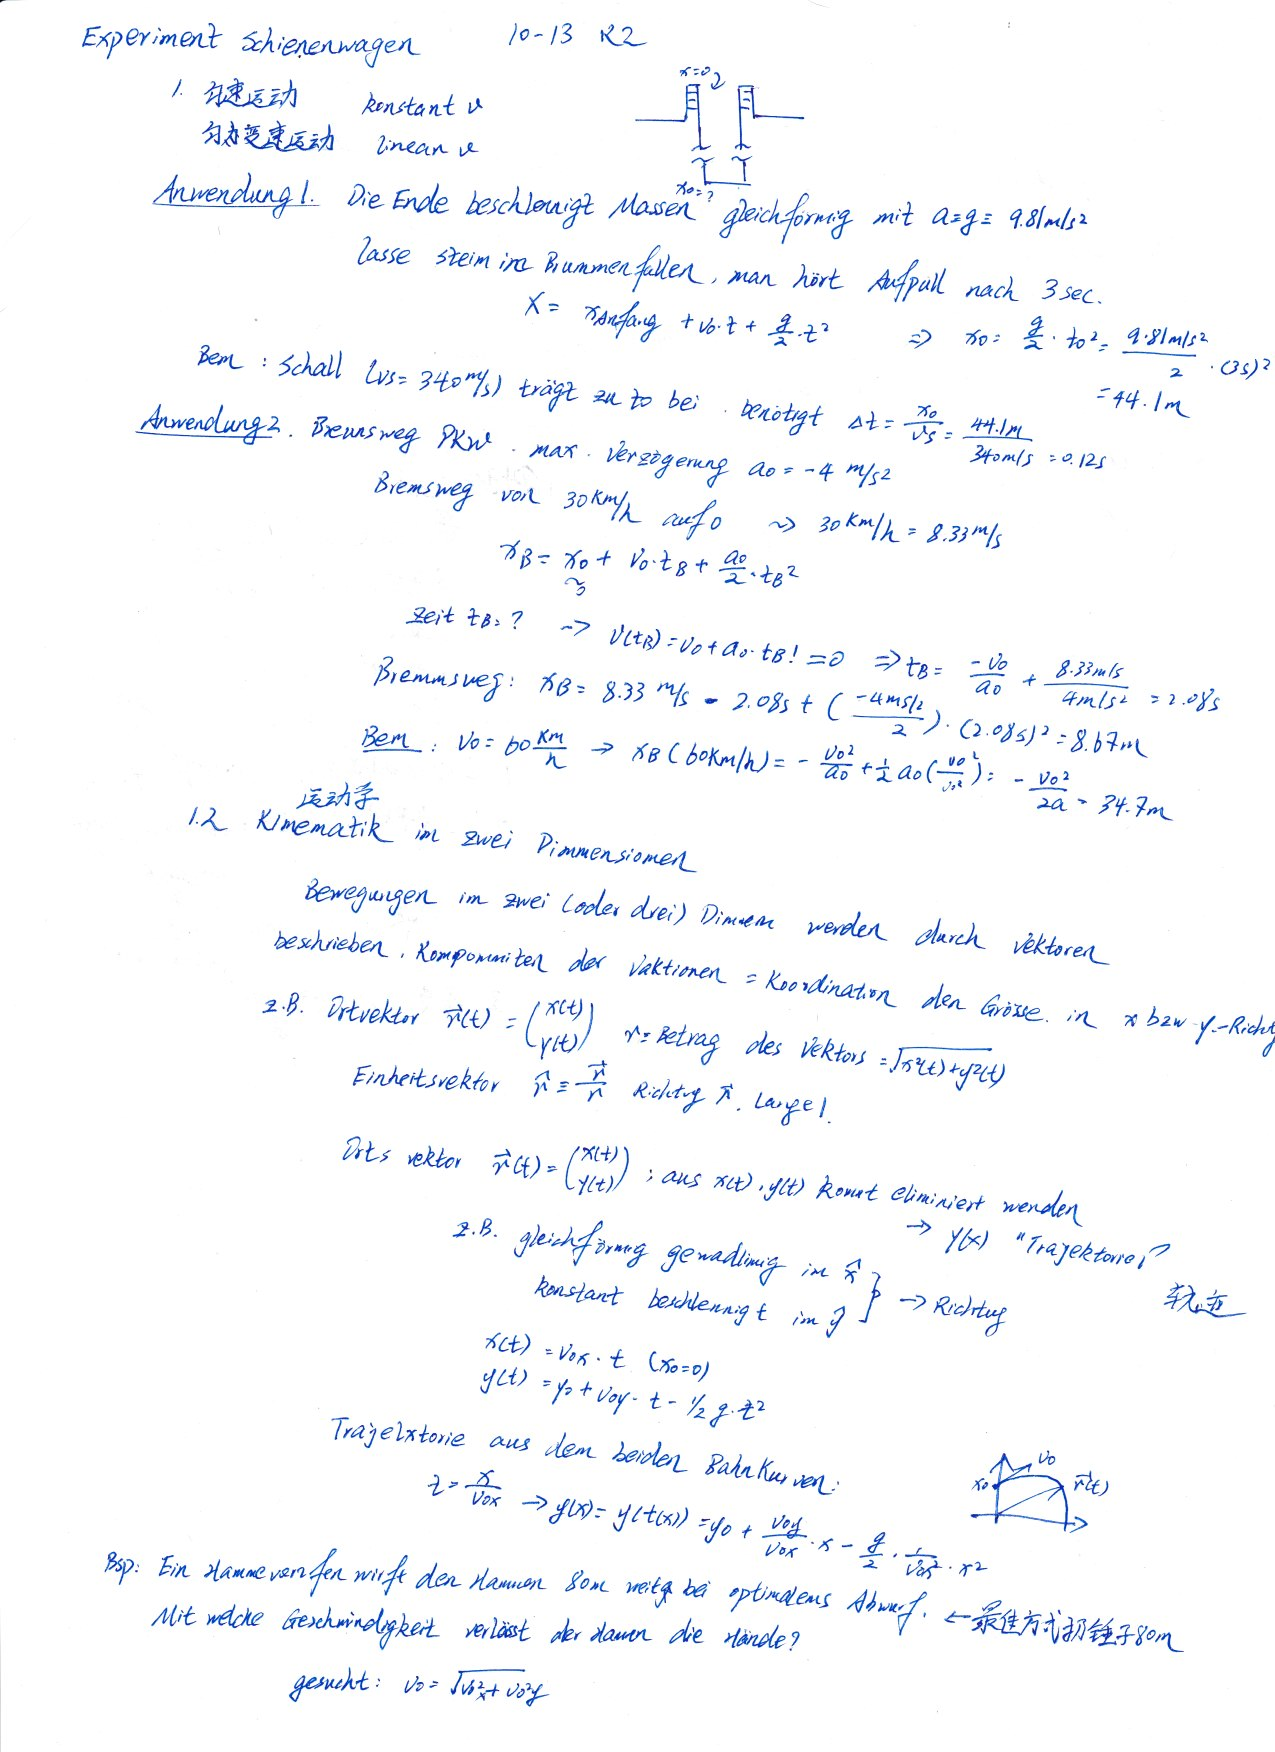 Experiment Schienenwagen 10-13 R2
1. 匀速运动 konstant v
匀变速运动 linear v
x=0
x0=?
Anwendung 1. Die Ende beschleunigt Massen gleichförmig mit a=g= 9.81m/s²
lasse steim im Brummen fallen, man hört Aufpall nach 3 sec.
X = xAnfang + v0·t + g/2·t² ⇒ x0 = g/2 · t0² = 9.81m/s²/2 · (3s)²
= 44.1m
Bem : Schall (vs = 340m/s) trägt zu to bei. benötigt Δt = x0/vs = 44.1m/340m/s = 0.12s
Anwendung 2. Bremsweg PKW. max. Verzögerung a0 = -4 m/s²
Bremsweg von 30 Km/h auf 0 ~> 30 Km/h = 8.33 m/s
xB = x0 + v0·tB + a0/2·tB²
0
Zeit tB = ? → v(tB) = v0 + a0·tB! = 0 ⇒ tB = -v0/a0 + 8.33m/s/4m/s² = 2.08s
Bremmsweg: xB = 8.33 m/s - 2.08s + (-4ms/2/2)·(2.08s)² = 8.67m
Bem : v0 = 60 Km/h → xB (60Km/h) = - v0²/a0 + 1/2 a0 (v0²/v0²) = - v0²/2a = 34.7m
运动学
1.2 Kinematik im zwei Dimmensionen
Bewegungen im zwei (oder drei) Dimnem werden durch Vektoren
beschrieben, Kompommiten der Vaktionen = Koordination den Grösse in x bzw y-Richt
z.B. Ortvektor r⃗(t) = (x(t) y(t)) r = Betrag des Vektors = √x²(t)+y²(t)
Einheitsvektor r̂ ≡ r⃗/r Richtug r⃗, Lange 1.
Orts vektor r⃗(t) = (x(t) y(t)) ; aus x(t), y(t) konnt eliminiert wenden
→ y(x) "Trajektorie"
轨迹
z.B. gleichförmig gewadlinig im x̂
konstant beschlennigt im ŷ } → Richtug
x(t) = v0x · t (x0=0)
y(t) = y0 + v0y · t - 1/2 g·t²
Trajektorie aus dem beiden Bahn Kurven:
t = x/v0x → y(x) = y(t(x)) = y0 + v0y/v0x · x - g/2 · 1/v0x² · x²
x0 v0 r⃗(t)
Bsp: Ein Hammeverzfen wirft den Hammen 80m weitg bei optimalems Abwurf. ← 最佳方式扔锤子80m
Mit welche Geschwindigkeit verlässt der Hamm die Hände?
gesucht: v0 = √v0²x + v0²y